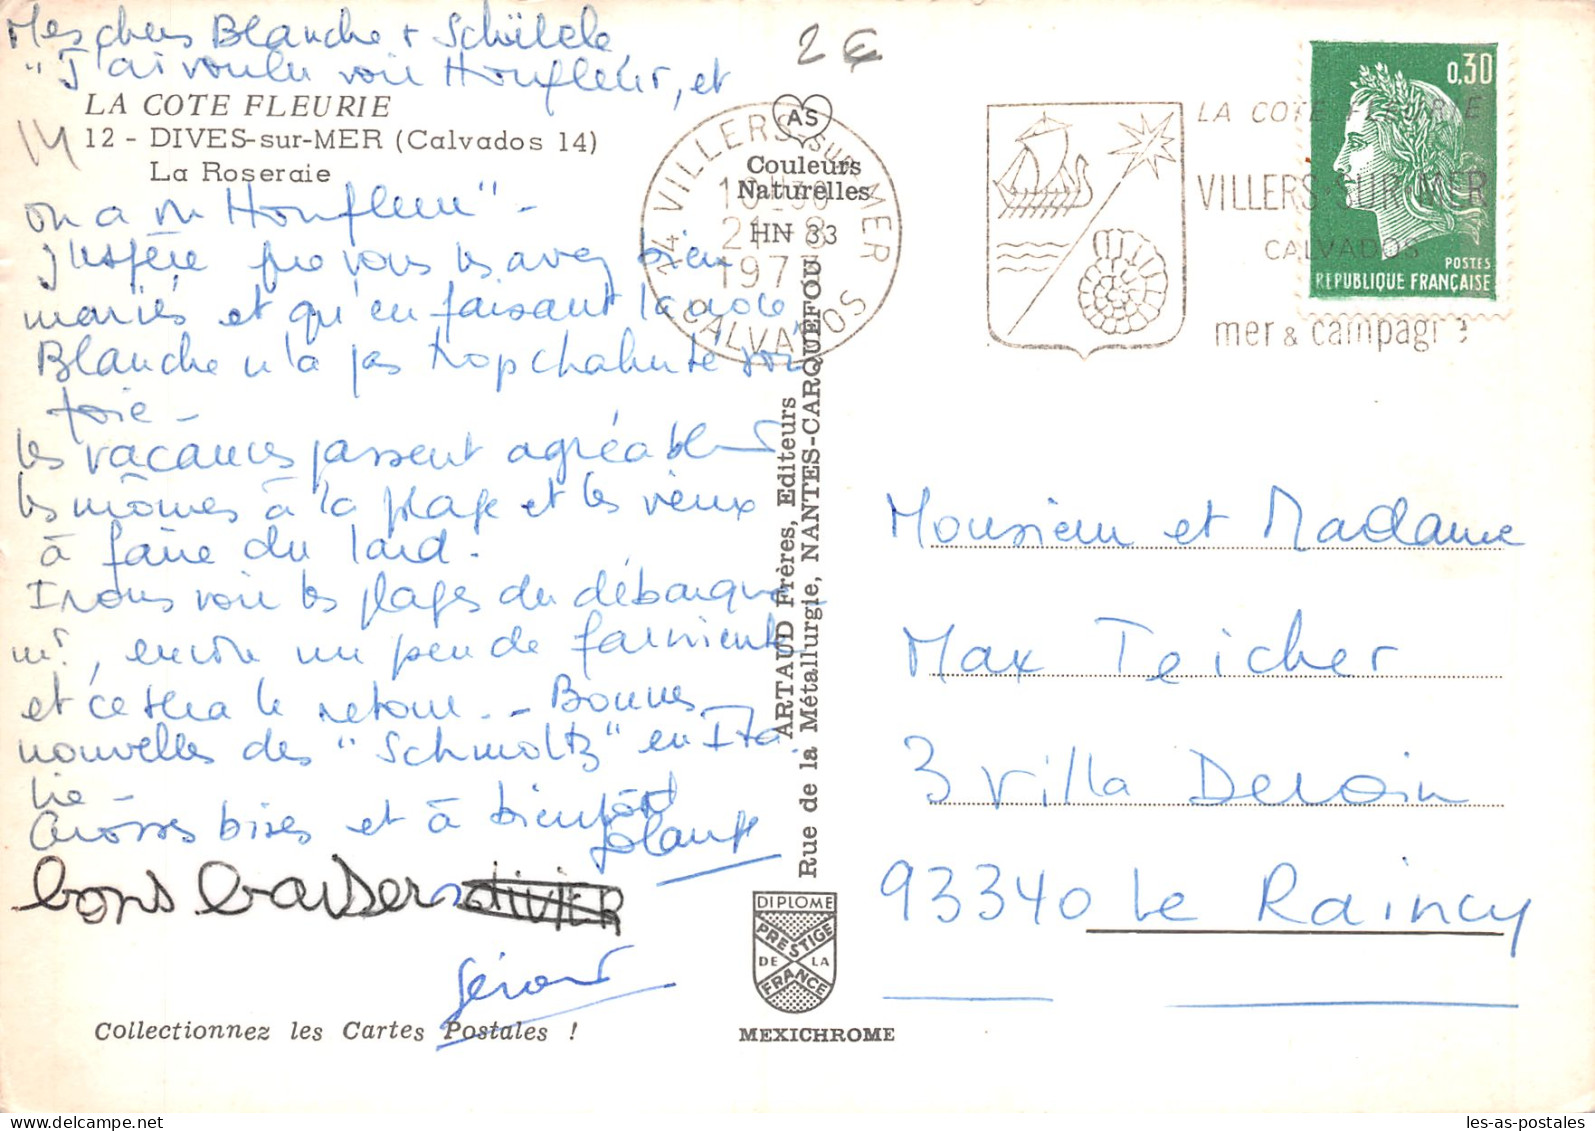 Mes chers Blanche + Schülele
"J'ai voulu voir Honfleur, et
LA COTE FLEURIE
12 - DIVES-sur-MER (Calvados 14)
La Roseraie
14
on a vu Honfleur" -
J'espère que vous les avez bien
mariés et qu'en faisant la noce
Blanche n'a pas trop chahuté son
foie -
Les vacances passent agréablemt
les mômes à la plage et les vieux
à faire du lard.
Irons voir les plages du débarque
mt, encore un peu de farniente
et ce sera le retour. - Bonnes
nouvelles des "Schmoltz" en Ita
lie -
Grosses bises et à bientôt
bons baisers OLIVIER
Gérard
Collectionnez les Cartes Postales !
2 €
AS
Couleurs
Naturelles
HN 33
14 VILLERS-sur-MER
21-8
197
CALVADOS
ARTAUD Frères, Editeurs
Rue de la Métallurgie, NANTES-CARQUEFOU
DIPLOME
PRESTIGE
DE LA
FRANCE
MEXICHROME
LA COTE FLEURIE
VILLERS-SUR-MER
CALVADOS
mer & campagne
0,30
POSTES
REPUBLIQUE FRANÇAISE
Monsieur et Madame
Max Teicher
3 Villa Deroin
93340 Le Raincy
les-as-postales.com